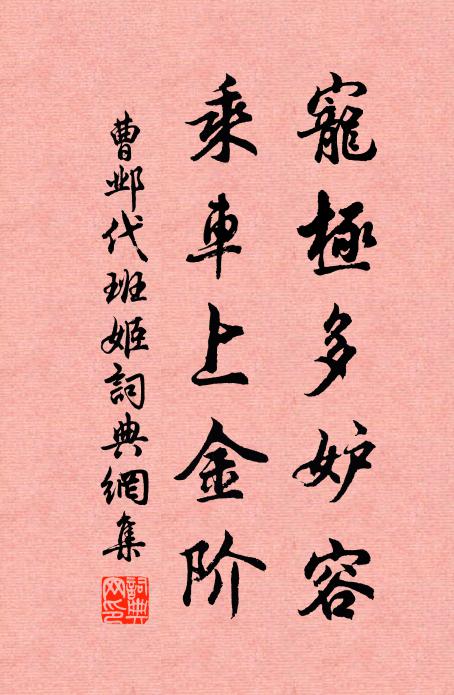 寵極多妒容
乘車上金阶
曹邺代班姬詞典網集
詞典网印